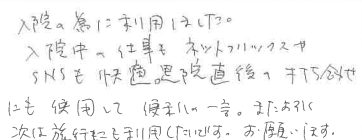 入院の為に利用しました。
入院中の仕事も ネットフリックスや
SNSも快適。退院直後の打ち合せ
にも使用して 便利の一言。またあれば
次は旅行にも利用したいです。お願いします。